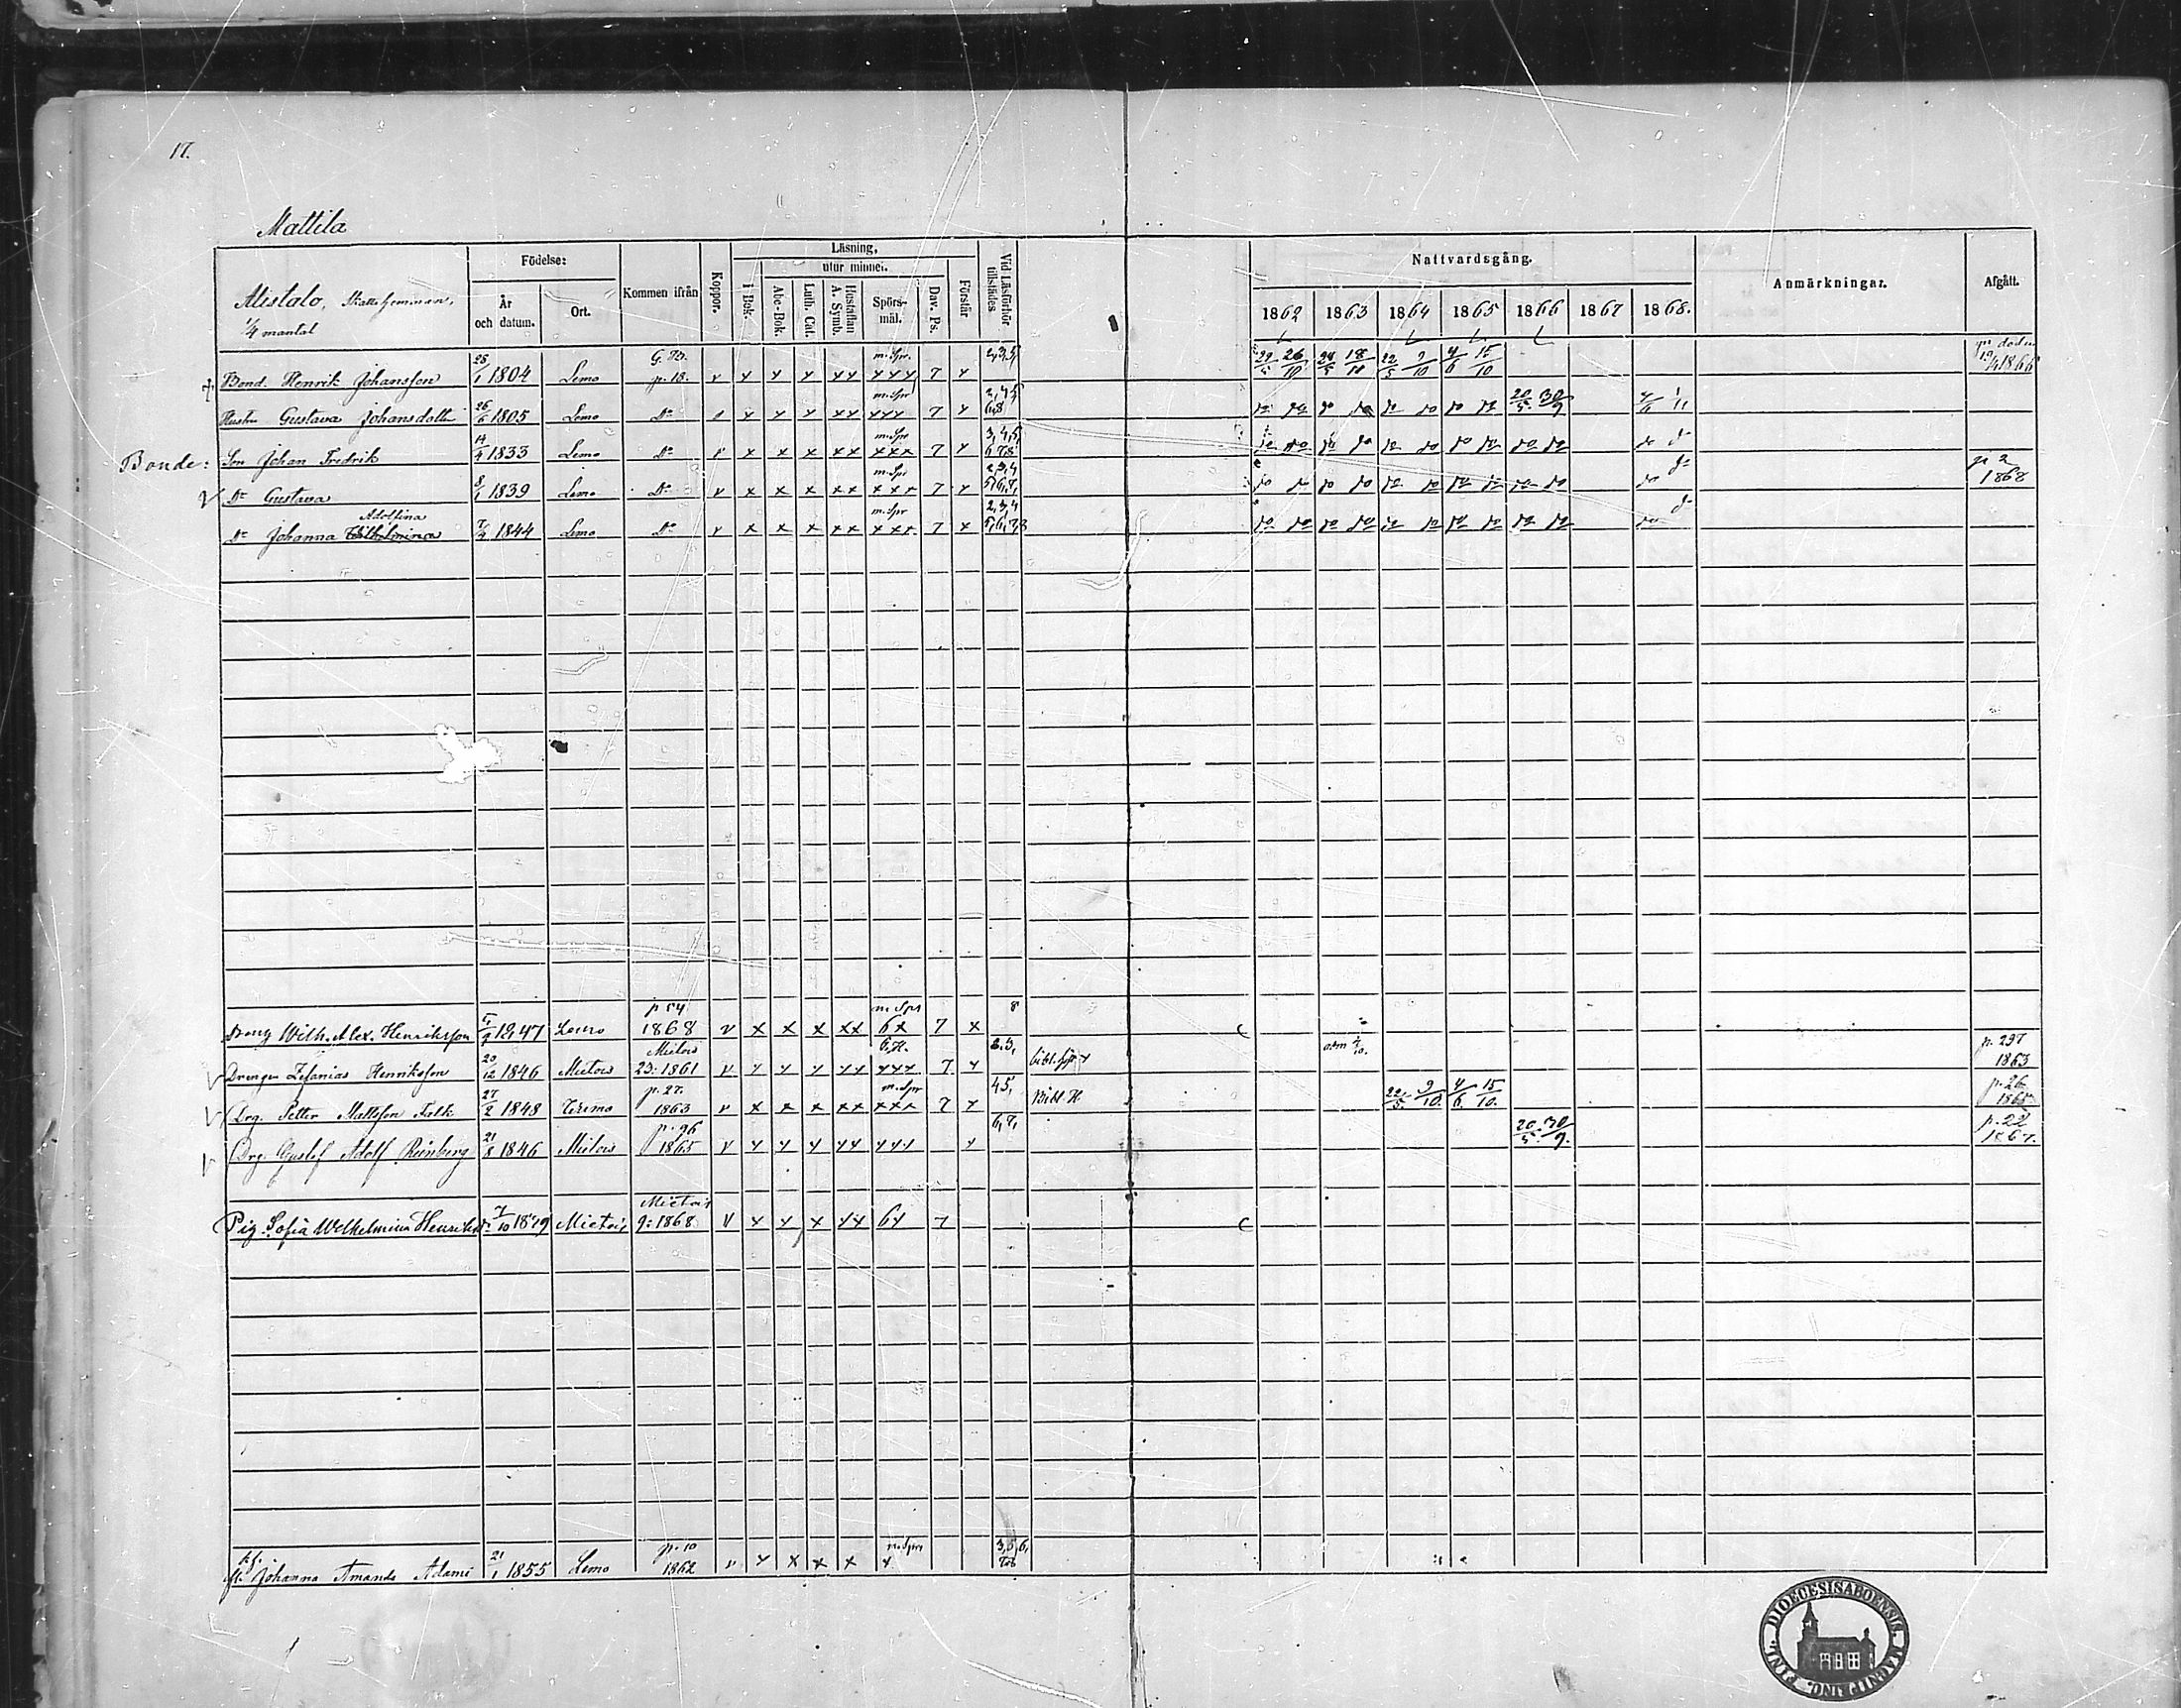 17.
Mattila
Alistalo, Skattehemman,
1/4 mantal
Födelse:
År och datum.
Ort.
Kommen ifrån
Koppor.
Läsning,
i Bok.
utur minnet.
Abc-Bok.
Luth. Cat.
Hustaflan A. Symb.
Spörs-mål.
Dav. Ps.
Förstår
Vid Läsförhör tillstädes
Nattvardsgång.
1862 1863 1864 1865 1866 1867 1868.
Anmärkningar.
Afgått.
Bond. Henrik Johansson 28/1 1804 Lemo p. 18. v x x x xx m. Spr. xxx 7 x 2,3,5 26/10 18/10 22/5 9/10 4/6 15/10 död 1866
Hustru Gustava Johansdotter 26/6 1805 Lemo Do x x x xx m. Spr xxx 7 x 6,8 do do do do do do do do 20/5 30/9 4/6 1/11
Bonde: Son Johan Fredrik 14/4 1833 Lemo Do x x x xx m. Spr xxx 7 x 3,4,5, 6 7 8 do do do do do do do do do do do do
v Dr Gustava 8/1 1839 Lemo Do v x x x xx m. Spr xxx 7 x 2,3,4 do do do do do do do do do do do do p. 2 1868
Dr Johanna Wilhelmina Adolfina 1844 Lemo Do v x x x xx m. Spr xxx 7 x 2,3,4 5,6,7,8 do do do do do do do do do do do do
Dreng Wilh. Alex. Henriksson 47 Lemo p 54 1868 v x x x xx m Spr 6x 7 x 8
v Drengen Zefanias Henriksson 20/12 1846 Mietois Mietois 23. 1861 v x x x xx 6. H. xxx 7 x 2.3, bibl. x adm p. 297 1863
v Drg. Petter Mattsson Falk 27/2 1848 p. 27. 1863 v x x x xx m. Spr xxx 7 x 45, Bibl. H 22/5. 9/10. 4/6. 15/10. p. 26 1865
v Drg. Gustef Adolf Reinberg 21/8 1846 Mietois p. 96 1865 v x x x xx xxx x 6,7, 20/5. 30/9. p. 22 1867.
Pig. Sofia Wilhelmina Henriksdr 7/10 1849 Mietois Mietois 9: 1868 v x x x xx 6x 7
Johanna Amanda Adami 21/1 1855 Lemo p. 10 1862 v x x x x m. Spr x 3,5,6, 7,8
FINL. DIOECESIS ABOENSIS. MAGNI DUC.